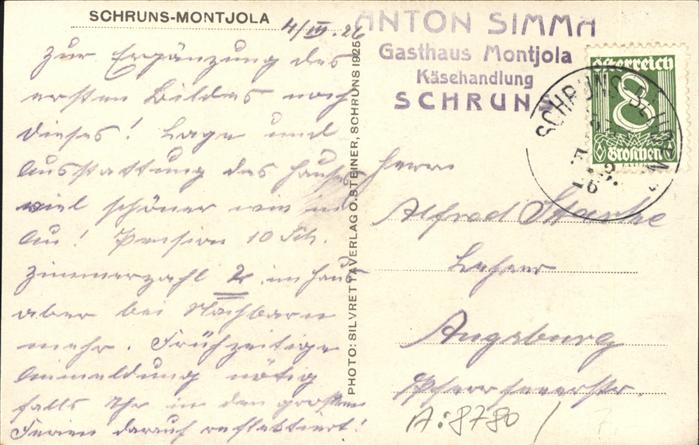 SCHRUNS-MONTJOLA
4/III. 26
zur Ergänzung des
ersten Bildes noch
dieses! Lage und
Ausstattung des Hauses
viel schöner wie in
Au! Pension 10 Sch.
Zimmerzahl 2 im Haus
aber bei Nachbarn
mehr. Frühzeitige
Anmeldung nötig
falls Ihr in den großen
Ferien darauf reflektiert!
PHOTO: SILVRETTAVERLAG O. STEINER, SCHRUNS 1925
ANTON SIMMA
Gasthaus Montjola
Käsehandlung
SCHRUNS
Österreich
8
Groschen
SCHRUNS
Herrn
Alfred Starke
Lehrer
Augsburg
A:8780